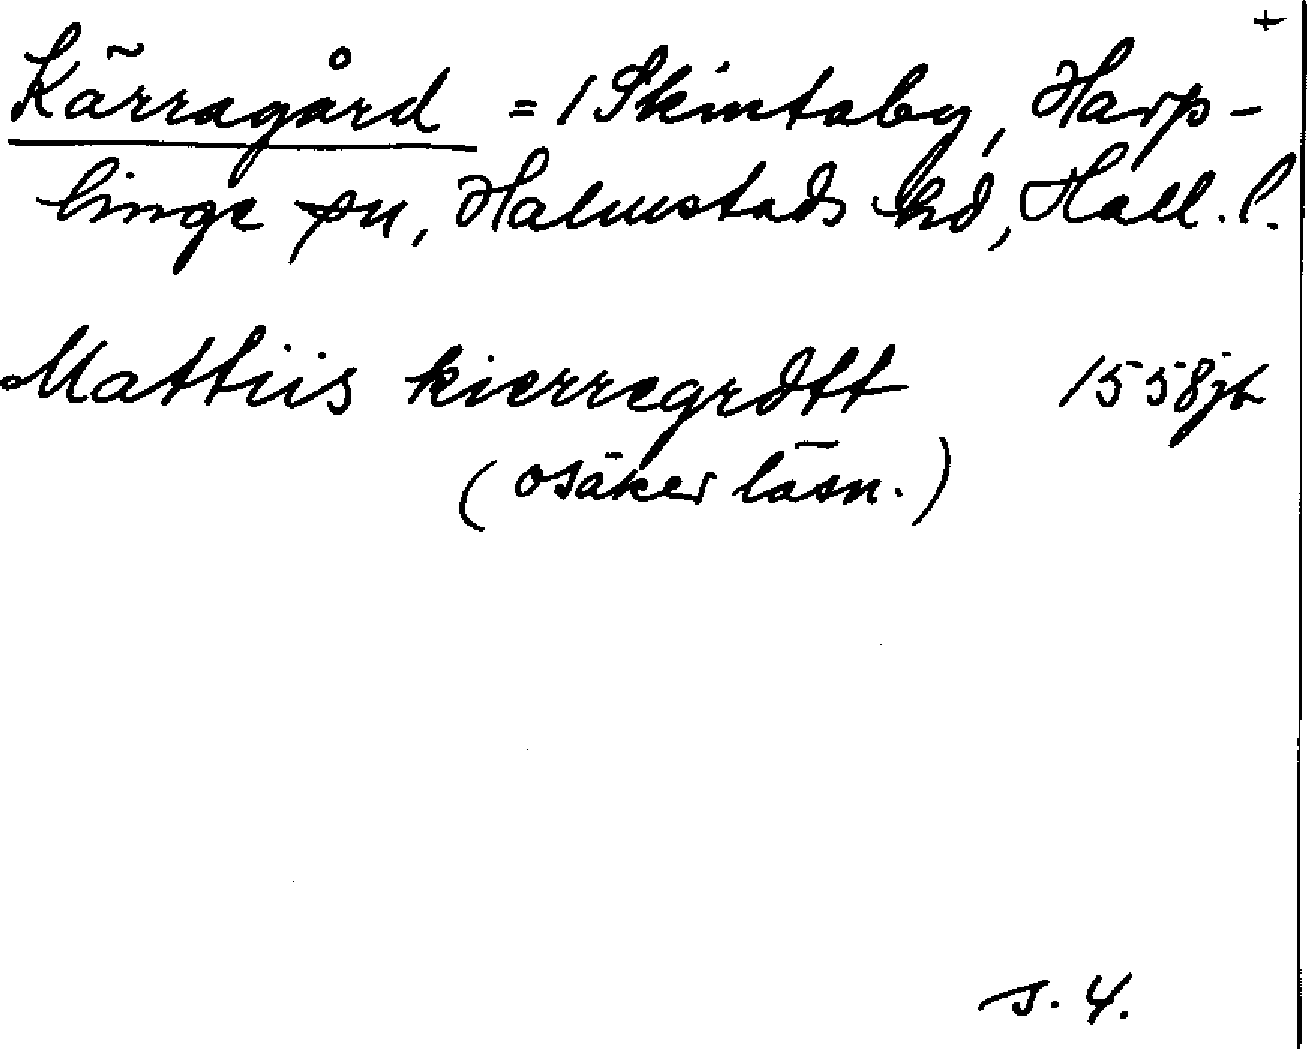 +
Kärragård = 1 Skintaby, Harp-
linge sn, Halmstads hd, Hall. l.
Mattiis kierregrdtt 1558 jb
(osäker läsn.)
s. 4.